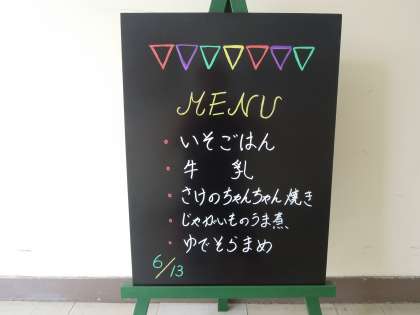 MENU
・いそごはん
・牛 乳
・さけのちゃんちゃん焼き
・じゃがいものうま煮
・ゆでそらまめ
6/13